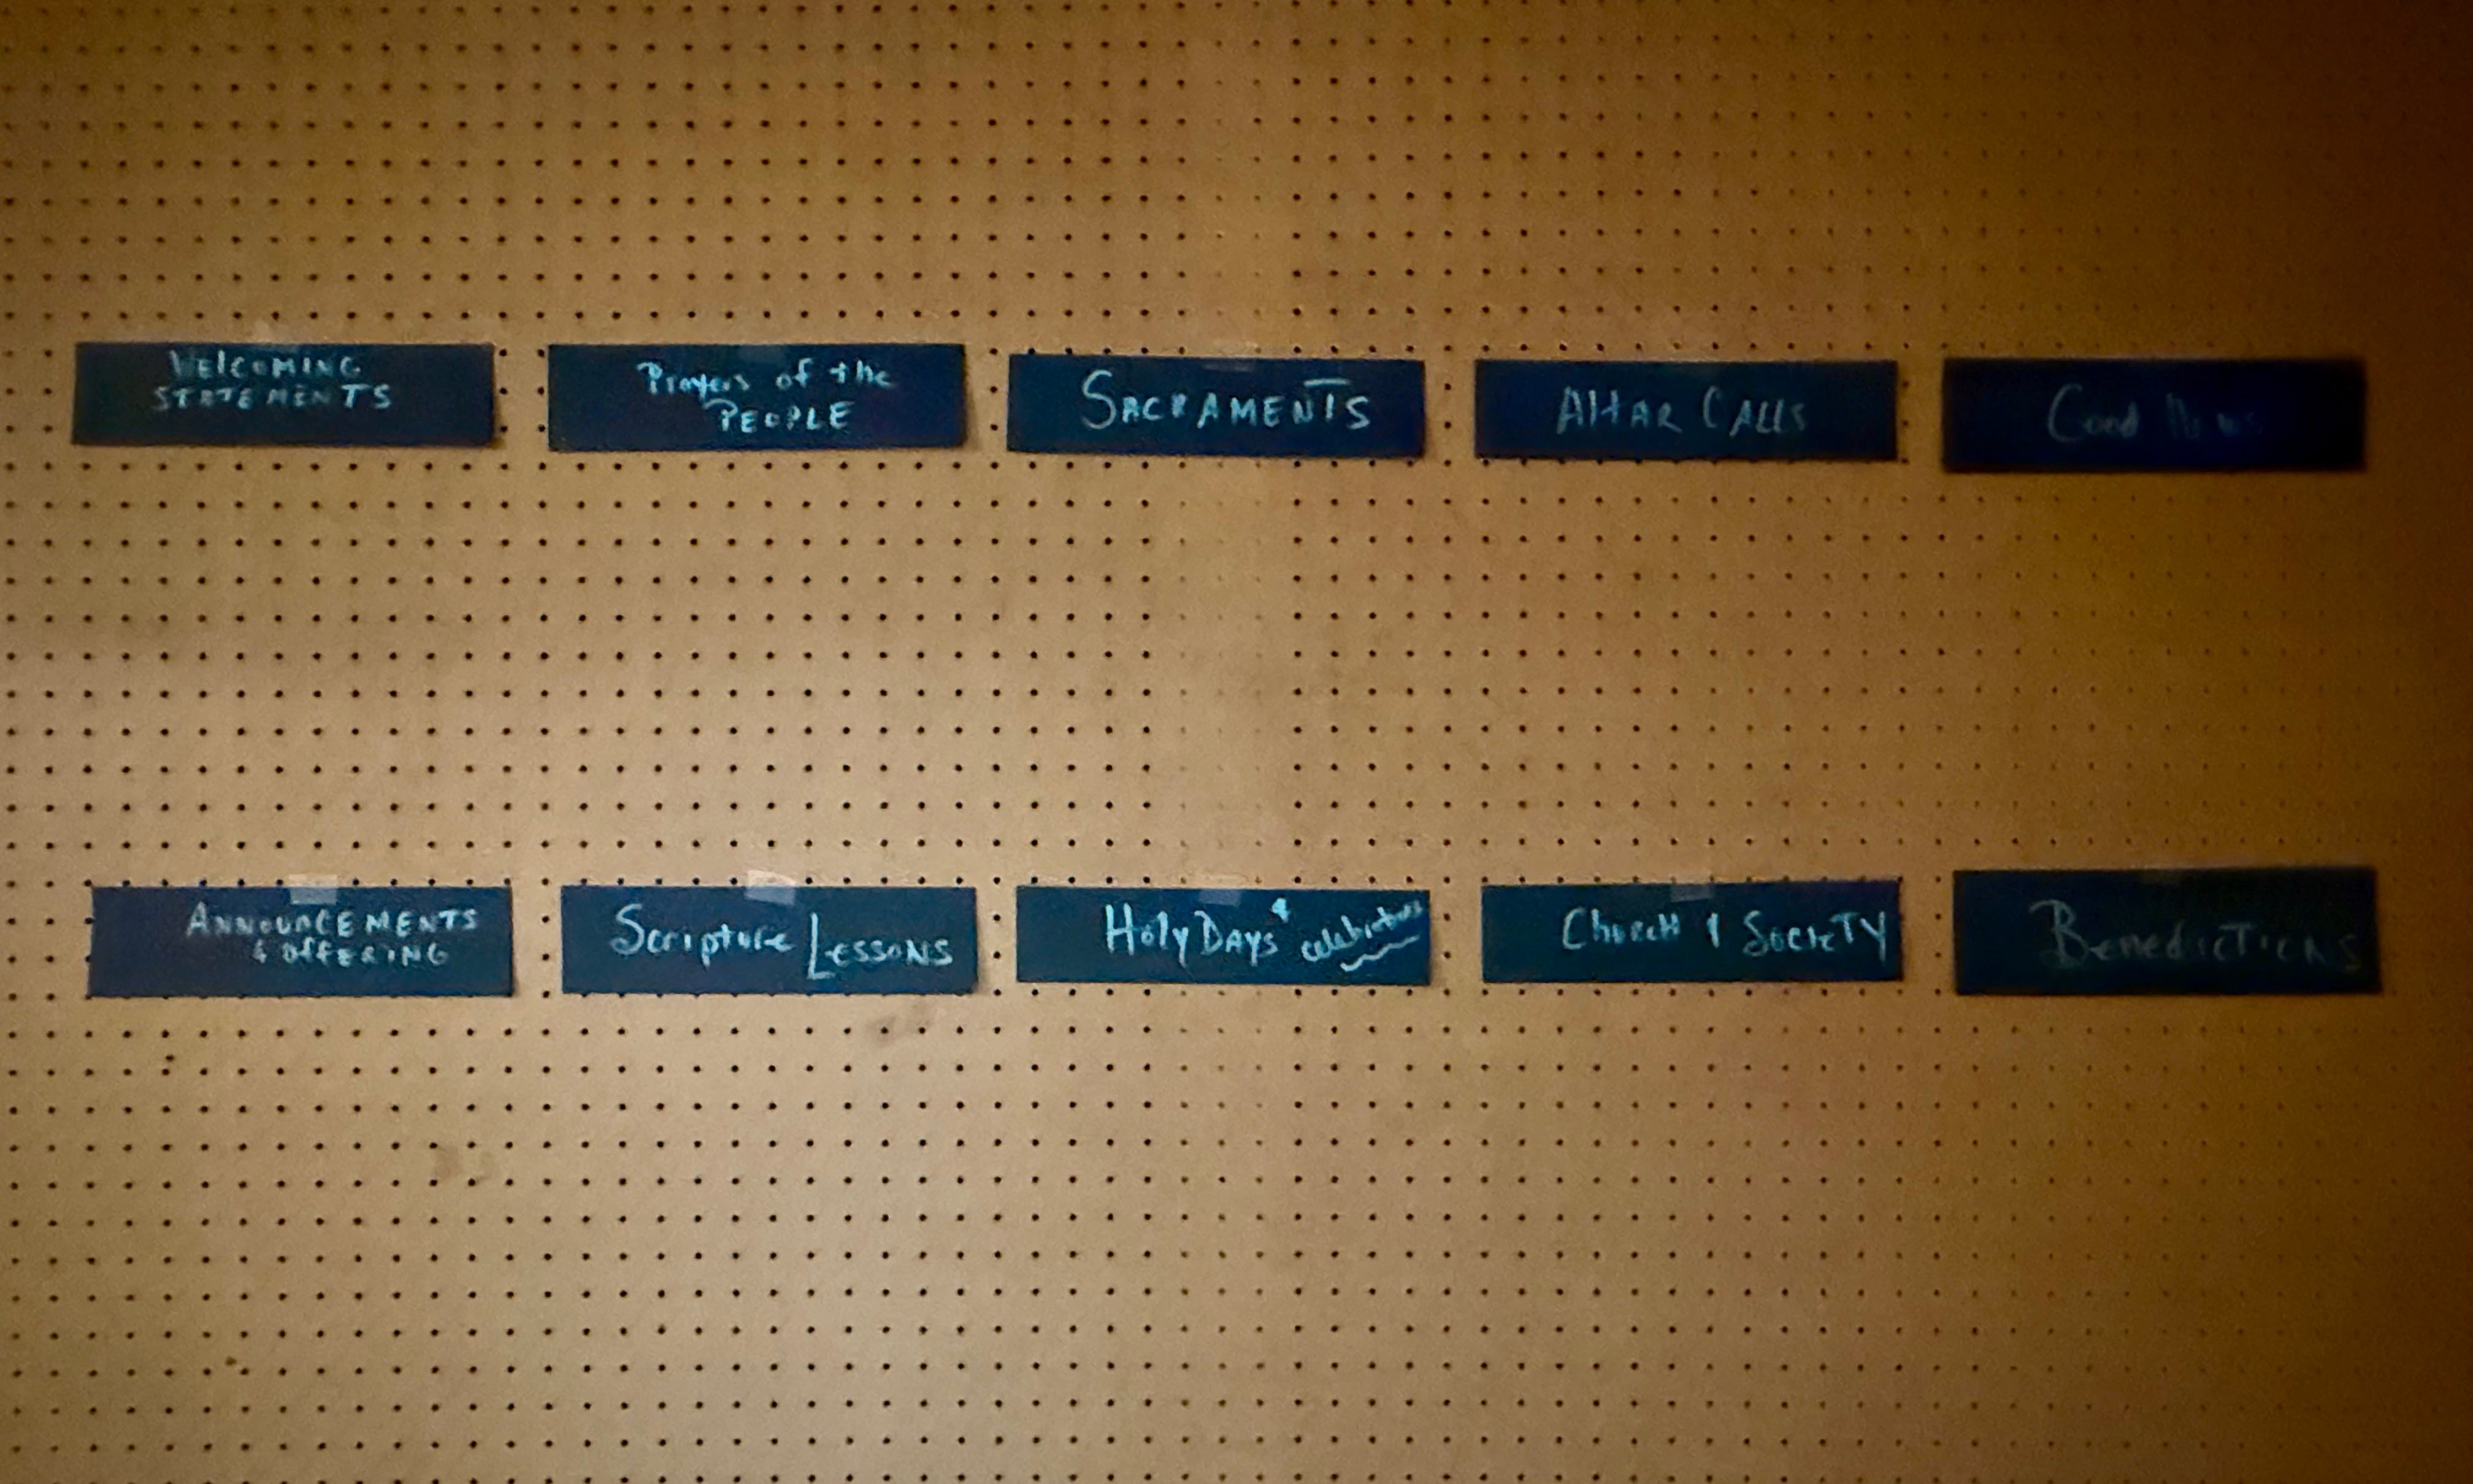 WELCOMING
STATEMENTS
Prayers of the
PEOPLE
SACRAMENTS
AltAR CALLS
Good News
ANNOUNCEMENTS
& OffERING
Scripture LESSONS
Holy DAYS & celebrations
ChurcH & SocieTY
BenedicTIONS